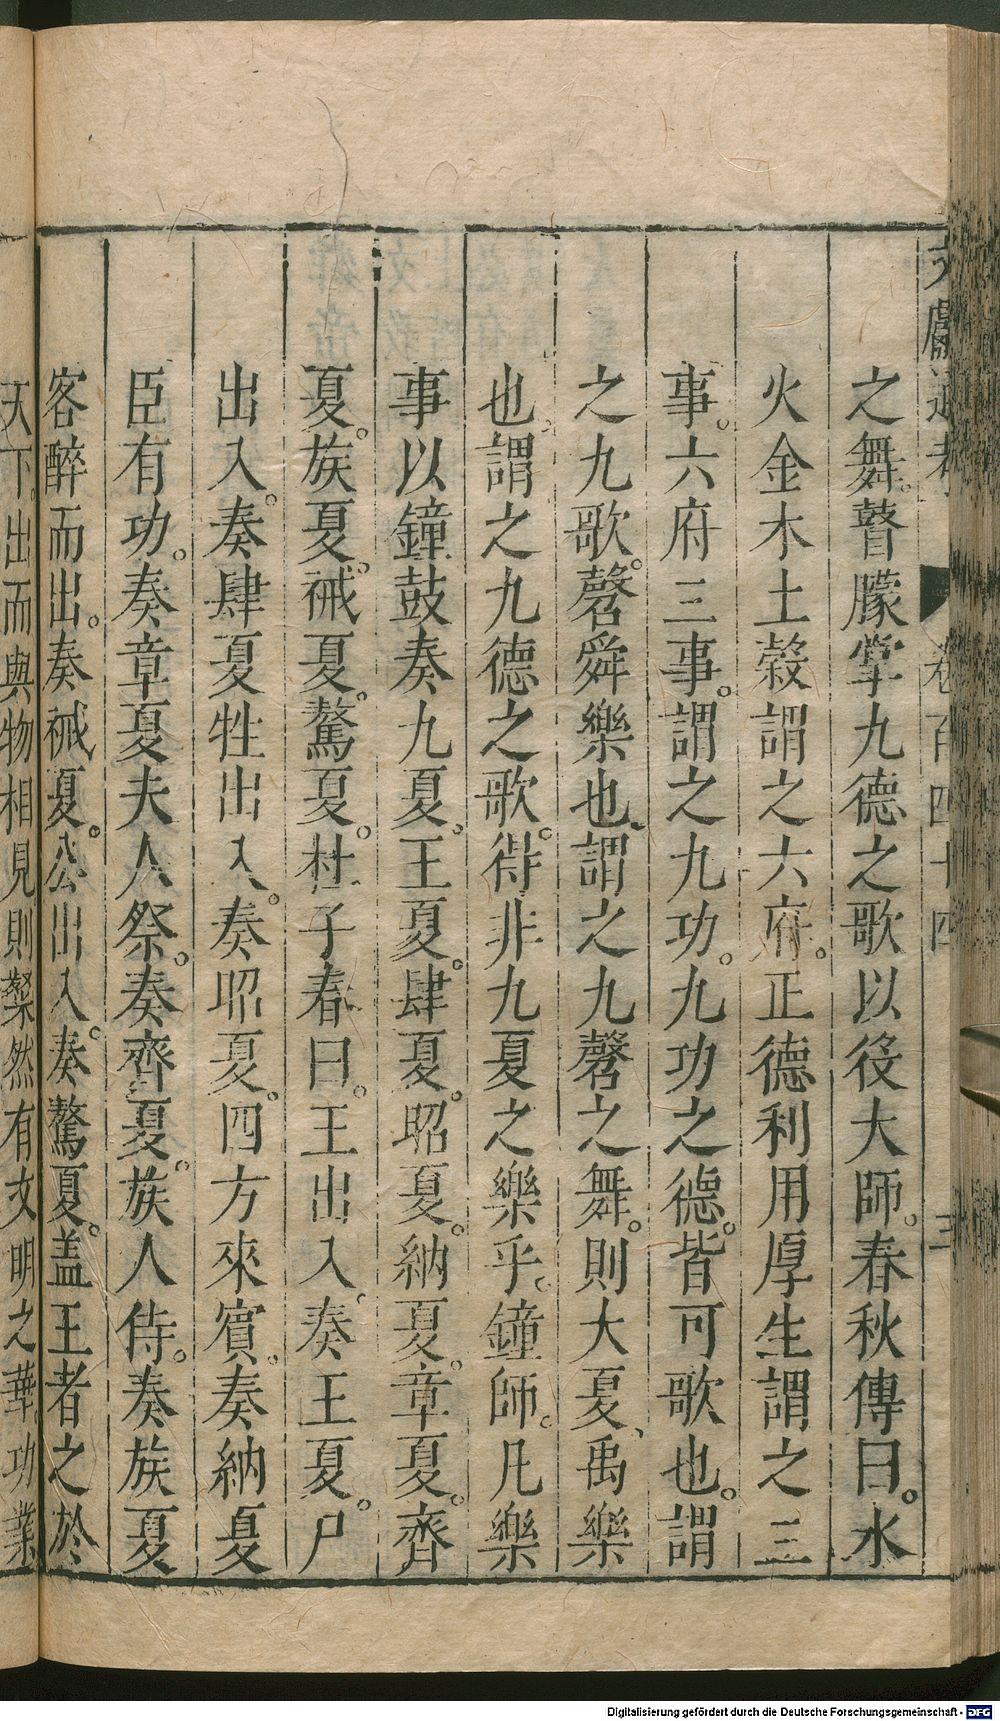 之舞。瞽矇掌九德之歌以役大師。春秋傳曰。水
火金木土榖謂之六府。正德利用厚生謂之三
事。六府三事。謂之九功。九功之德。皆可歌也。謂
之九歌。磬舜樂也、謂之九磬之舞。則大夏、禹樂
也。謂之九德之歌。得非九夏之樂乎。鐘師。凡樂
事以鐘鼓奏九夏。王夏。肆夏。昭夏。納夏。章夏。齊
夏。族夏。祴夏。驁夏。杜子春曰。王出入。奏王夏。尸
出入。奏肆夏牲出入。奏昭夏。四方來賓。奏納夏
臣有功。奏章夏夫人祭。奏齊夏。族人侍。奏族夏
客醉而出。奏祴夏。公出入。奏驁夏。盖王者之於
天下。出而與物相見則粲然有文明之華功業
文獻通考
卷百四十四
三
Digitalisierung gefördert durch die Deutsche Forschungsgemeinschaft - DFG